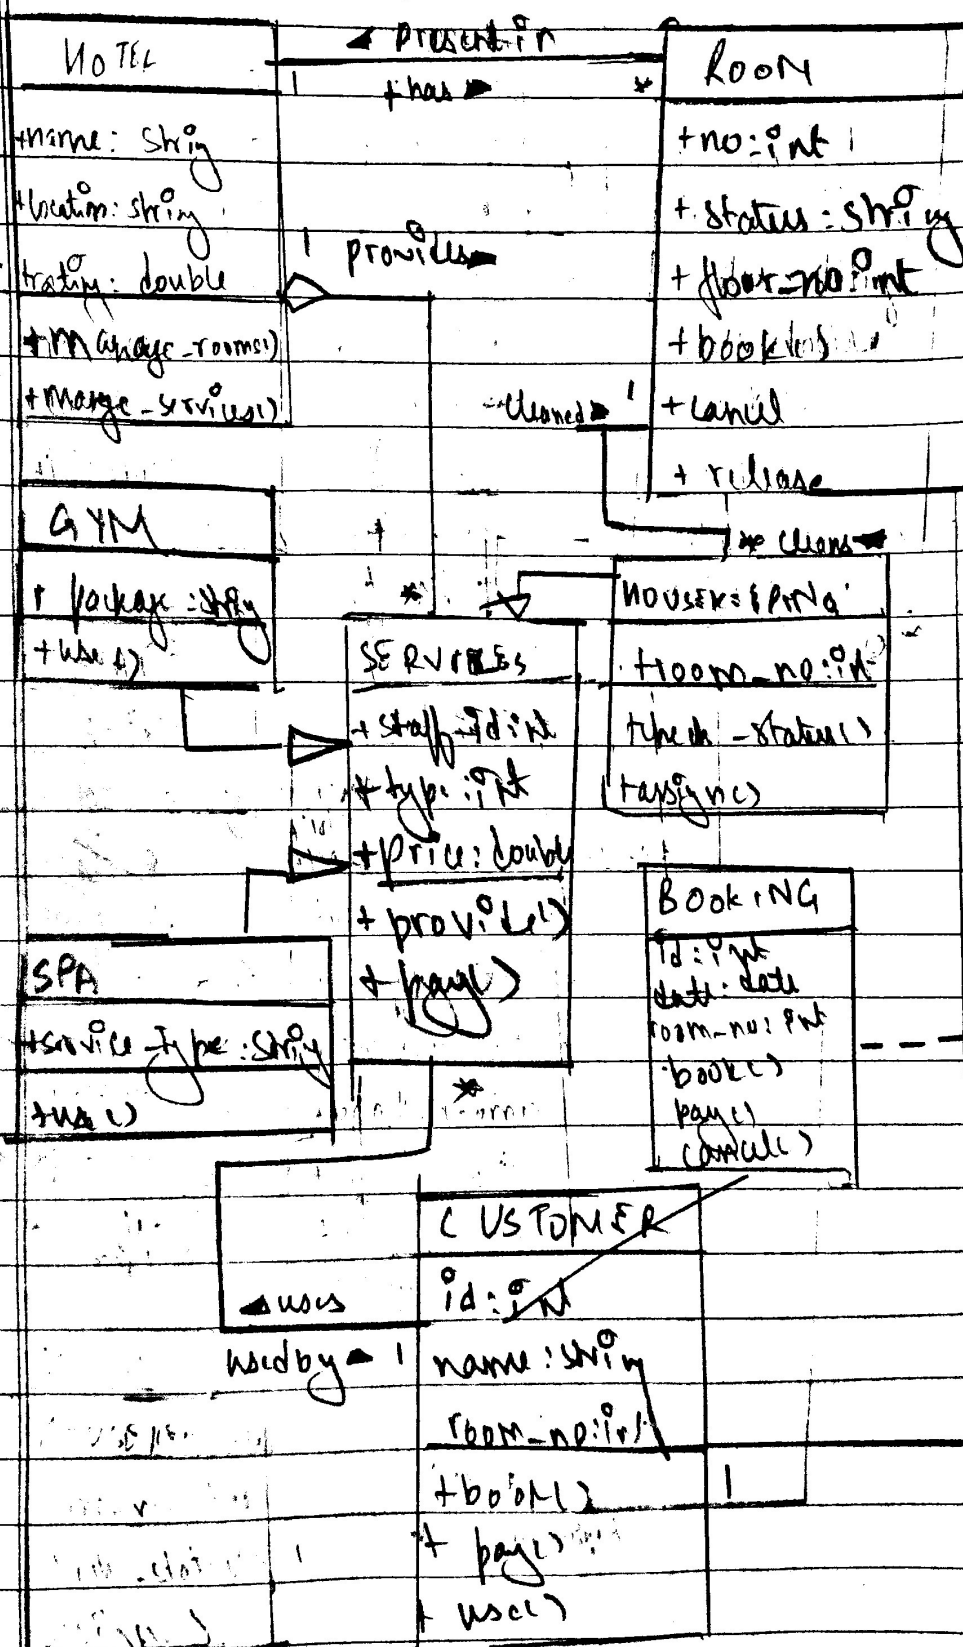 HOTEL
+name: string
+location: string
+rating: double
+manage_rooms()
+manage_services()
◄ present in
1 +has ► *
ROOM
+no:int
+status:string
+floor_no:int
+cancel
+release
1 provides ►
cleaned ► 1
* cleans ◄
GYM
package:string
+use()
*
SERVICES
+staff_id:int
+type:int
+price:double
+provide()
+pay()
*
HOUSEKEEPING
+room_no:int
+check_status()
+assign()
SPA
+service_type:string
+use()
BOOKING
id:int
date:date
room_no:int
book()
pay()
cancel()
◄ uses
used by ► 1
CUSTOMER
id:int
name:string
room_no:int
+book()
+pay()
+use()
1